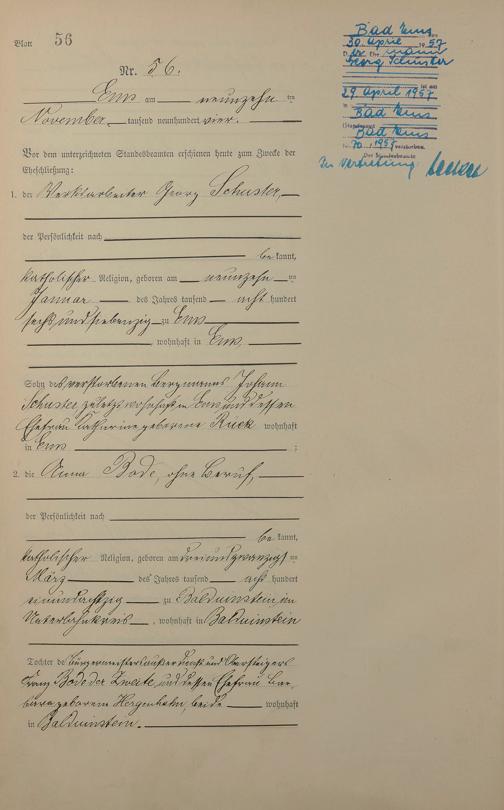 Blatt 56
Nr. 56.
Ems am neunzehnten
November tausend neunhundert vier.
Vor dem unterzeichneten Standesbeamten erschienen heute zum Zwecke der
Eheschließung:
1. der Werkarbeiter Georg Schuster,
der Persönlichkeit nach
be kannt,
katholischer Religion, geboren am neunzehnten
Januar des Jahres tausend acht hundert
sechsundsiebenzig zu Ems
, wohnhaft in Ems,
Sohn des verstorbenen Bergmanns Johann
Schuster, zuletzt wohnhaft in Ems und dessen
Ehefrau Katharine geborene Rück wohnhaft
in Ems ;
2. die Anna Bode, ohne Beruf,
der Persönlichkeit nach
be kannt,
katholischer Religion, geboren am dreiundzwanzigsten
März des Jahres tausend acht hundert
einundachtzig zu Balduinstein, im
Unterlahnkreis , wohnhaft in Balduinstein
Tochter des Bürgermeisters außer Dienst und Obersteigers
Franz Bode der Zweite und dessen Ehefrau Bar-
bara geborenen Hergenhahn, beide wohnhaft
in Balduinstein.
Bad Ems, den
30. April 1957
D er Ehemann
Georg Schuster
ist am
29. April 1957
in Bad Ems
Standesamt
Bad Ems
Nr. 70 / 1957 verstorben.
Der Standesbeamte
In Vertretung